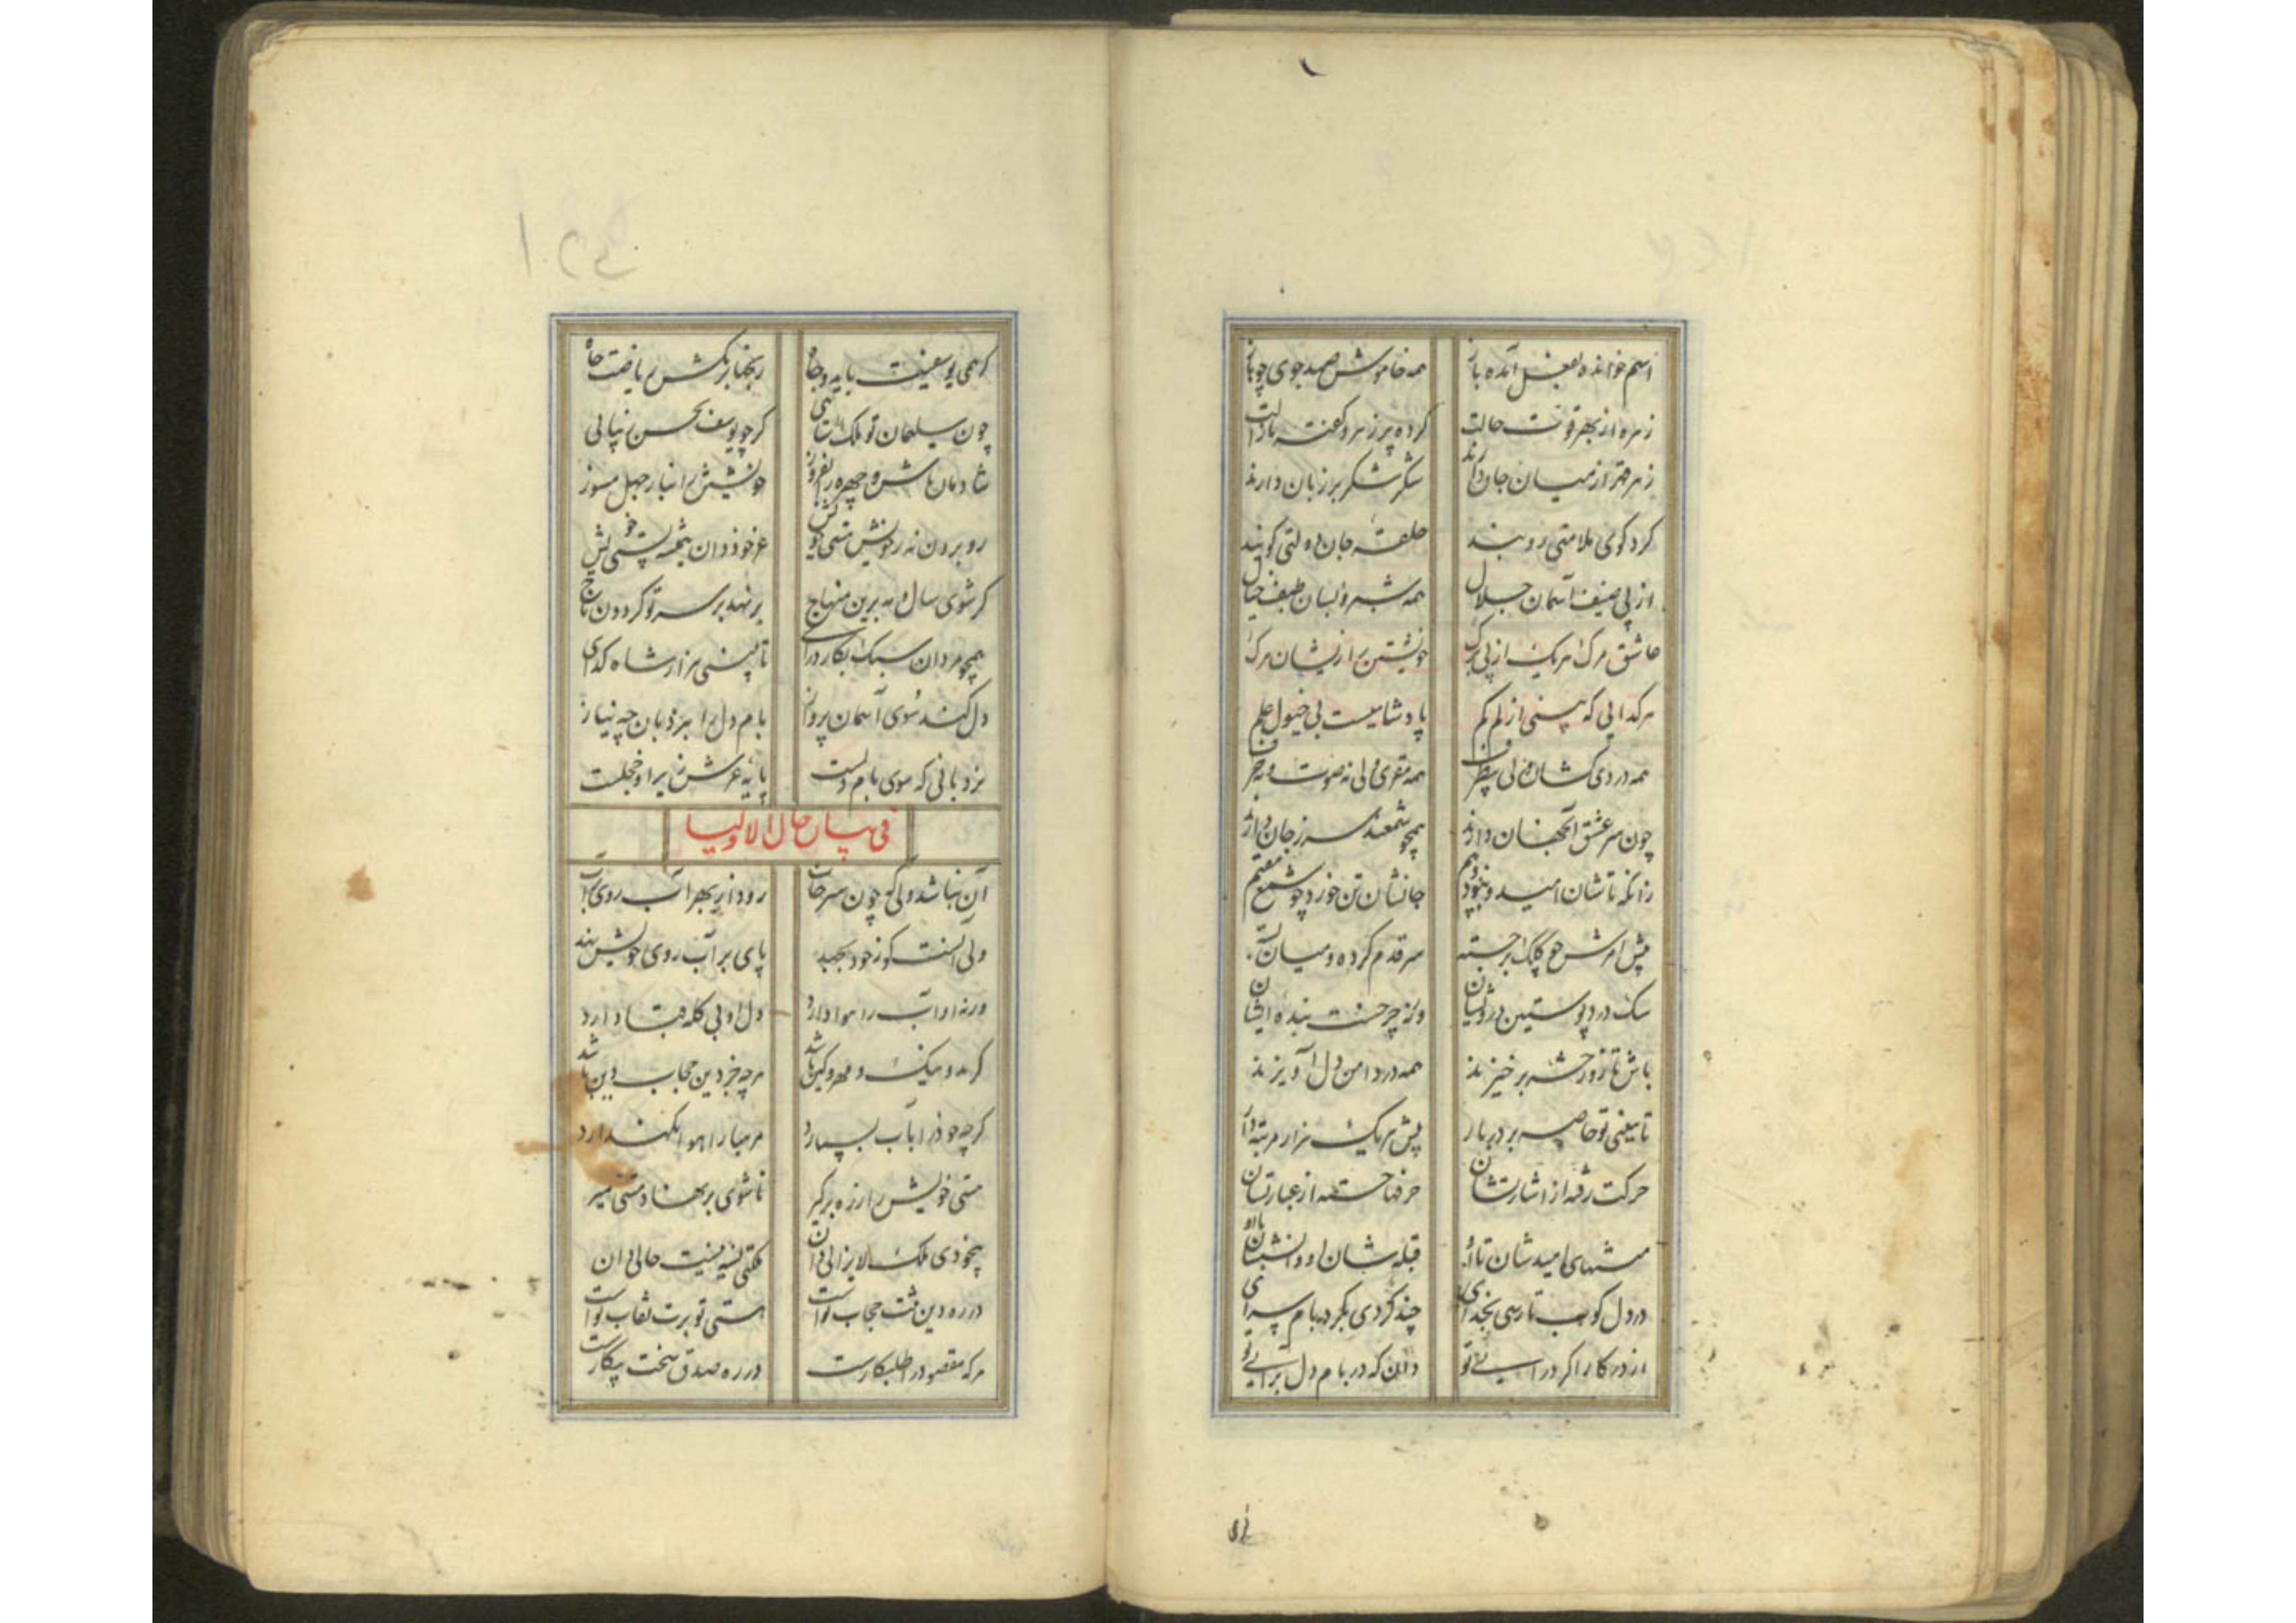 اسم خوانده لفعل آمده باز همه خاموش صید جوی چو باز
زهره از بهر قوت حالت کرده پر زهر و گفته
زهر قهر از میان جان دارند شکر شکر بر زبان دارند
کرد کوی ملامتی رویند حلقه جان دولتی کوبند
از پی ضیف آسمان جلال همه شبرو بسان طیف خیال
عاشق مرک هر یک از پی برک خویشتن را
هر کدایی که بینی از کم کم پادشاییست بی خیول علم
همه دردی کشان ولی بی ظرف همه مقری ولی نه صوت و نه حرف
چون سر عشق آنجهان دارند همچو شمعند سر ز جان دارند
زانکه تاشان امید و نبود و بیم جانشان تن خورد چو شمع مقیم
پیش امرش چو کلک برجسته سر قدم کرده و میان بسته
سک درد پوستین درویشان ورنه چرخست بنده ایشان
باش تا روز حشر برخیزند همه در دامن دل آویزند
تا ببینی تو خاصه بر در بار پیش هر یک هزار مرتبه دار
حرکت رفته از اشارتشان حرفها جسته از عبارتشان
منتهای امیدشان تا او قبله شان او و انسشان با او
در دل کوب تا رسی بخدای چند کردی بکرد بام سرای
از در کار اگر درآیی تو دان که در بام دل برآیی تو
کر همی یوسفیت باید و جاه
چون سلیمان تو ملک کر چو یوسف بحسن
شادمان باش و چهره را بفروز خویشتن را جهل مسوز
رو بردن نه ز خویش هستی خویش عز خود دان بتحفه پستی خویش
کر شوی سال و مه برین منهاج بر نهد بر سر تو کردون تاج
همچو مردان سبک بکار درای تا ببینی هزار شاه کدای
دل کند سوی آسمان پرواز بام دل را بنردبان چه نیاز
نردبانی که سوی بام دلست پایه عرش زیر او خجلست
فی بیان حال الاولیا
آن نباشد ولی که چون رود از بهر آب روی بر آب
ولی آنست کو ز خود بجهد پای بر آب روی خویش نهد
ورنه او آب را هوا دارد دل او بی کله قبا دارد
کر بد و نیک و مهر و کین باشد هر چه جز دین حجاب دین باشد
کرچه خود را بآب بسپارد مر هبا را هوا نکهدارد
هستی خویش را ز ره برکیر تا شوی بر نهاد هستی میر
بیخودی ملک لایزالی دان ملکتی نسیه نیست حالی دان
در ره دین تنت حجاب تو است هستی تو برت نقاب تو است
هر که مقصود را طلبکارست در ره صدق سخت بیکارست